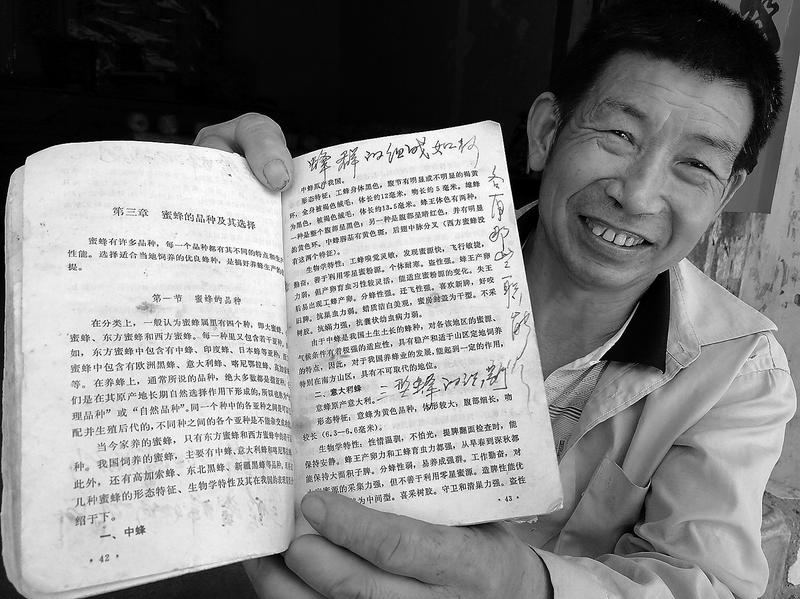 第三章 蜜蜂的品种及其选择
蜜蜂有许多品种，每一个品种都有其不同的特点和生产
性能。选择适合当地饲养的优良蜂种，是搞好养蜂生产的前
提。
第一节 蜜蜂的品种
在分类上，一般认为蜜蜂属里有四个种，即大蜜蜂、
蜜蜂、东方蜜蜂和西方蜜蜂。每一种里又包含若干亚种。
如，东方蜜蜂中包含有中蜂、印度蜂、日本蜂等亚种；
蜜蜂中包含有欧洲黑蜂、意大利蜂、喀尼鄂拉蜂、高加索
等。在养蜂上，通常所说的品种，绝大多数都是亚种，
们是在其原产地长期自然选择作用下形成的，所以也称为“
理品种”或“自然品种”。同一个种中的各亚种之间是可以
配并生殖后代的，不同种之间的各个亚种是不能杂交
当今家养的蜜蜂，只有东方蜜蜂和西方蜜蜂中的若干
种。我国饲养的蜜蜂，主要有中蜂、意大利蜂和喀尼鄂拉
此外，还有高加索蜂、东北黑蜂、新疆黑蜂等品种。
几种蜜蜂的形态特征、生物学特性及其在我国的表现
绍于下。
一、中蜂
· 42 ·
蜂群的组成如
中蜂原 我国。
形态特征，工蜂身体黑色，腹节有明显或不明显的褐黄
环，全身被褐色绒毛，体长约12毫米，吻长约5毫米。雄蜂
为黑色，被褐色绒毛，体长约13.5毫米。蜂王体色有两种，
一种是整个腹部都呈黑色；另一种是腹部呈暗红色，并有明显
的黄色环。中蜂唇基有黄色斑，后翅中脉分叉（西方蜜蜂没
有这两个特征）。
生物学特性：工蜂嗅觉灵敏，发现蜜源快，飞行敏捷，
勤奋，善于利用零星蜜粉源。个体耐寒。盗性强。蜂王产卵
力弱，但产卵育虫习性较灵活，能适应蜜粉源的变化。失王
后易出现工蜂产卵。分蜂性强。迁飞性强。喜欢新脾，好咬
旧脾。抗巢虫力弱。蜡质洁白美观，蜜房封盖为干型。不采
树胶。抗螨力强，抗囊状幼虫病力弱。
由于中蜂是我国土生土长的蜂种，对各该地区的蜜源、
气候条件有着极强的适应性，具有稳产和适于山区定地饲养
的特点，因此，对于我国养蜂业的发展，能起到一定的作用，
特别在南方山区，具有不可取代的地位。
二、意大利蜂 三型蜂的
意蜂原产意大利。
形态特征；意蜂为黄色品种，体形较大；腹部细长，吻
较长（6.3—6.6毫米）。
生物学特性：性情温驯，不怕光，提脾翻面检查时，能
保持安静。蜂王产卵力和工蜂育虫力都强，从早春到深秋都
能保持大面积子脾。分蜂性弱，易养成强群。工作勤奋，对
蜜源的采集力强，但不善于利用零星蜜源。造脾性能优
为中间型。喜采树胶。守卫和清巢力强。盗性
· 43 ·